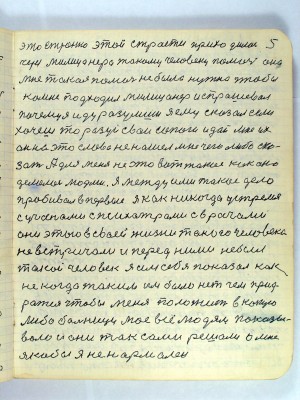 это странно этой страсти прихо дилос 5
чуи милицонера такому человеку помочь она
мне такая помоч небыла нужна чтобы
комне подходил милицонер и спрашевал
почему я иду разумши я ему сказал если
хочеш то разуй свои сапоги и дай мне их
он на это слово не нашел мне чего либо ска-
зат А для меня не это вот такое как оно
делалос людми. Я между ими такое дело
пробивал впервые я как никогда
с учоными с психатрами с врачами
они этого в своей жизни такого человека
не встричали и перед ними небыл
такой человек я сам себя показал как
не когда таким им было нет чем прид
ратся чтобы меня положит в какую
либо болницу мое всё людям показы-
вало и они так сами решали о мне
якобы я не нармален